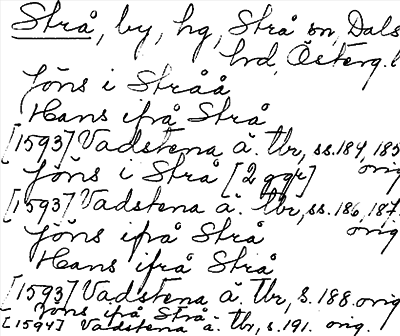 Strå, by, hg, Strå sn, Dals
hd, Österg.l
Jöns i Stråå
Hans ifrå Strå
[1593] Vadstena ä. tbr, ss. 184, 185
orig
Jöns i Strå [2 ggr]
[1593] Vadstena ä. tbr, ss. 186, 187.
orig
Jöns ifrå Strå
Hans ifrå Strå
[1593] Vadstena ä. tbr, s. 188. orig
Jöns ifrå Strå
[1594] Vadstena ä. tbr, s. 191. orig.